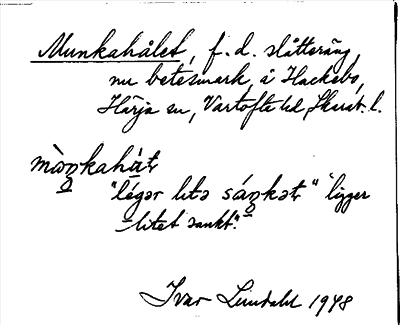 Munkahålet, f. d. slåtteräng,
nu betesmark, å Hackebo,
Härja sn, Vartofta hd, Skarab. l.
màŋkahàt
"légər litə sáŋkət" 'ligger
litet sankt'.
Ivar Lundahl 1948